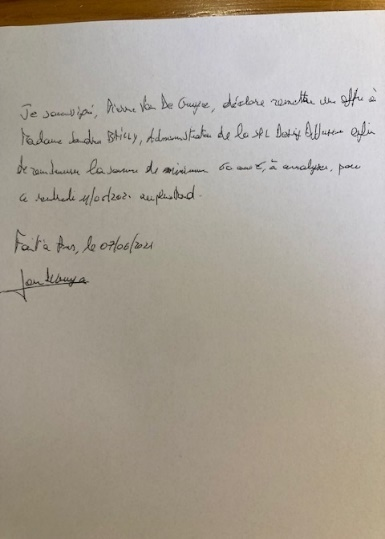 Je soussigné, Pierre Van De, déclare remettre un offre à
Madame Sandra, Administratrice de la SRL afin
de rembourser la somme de minimum 60 000 €, à analyser, pour
ce vendredi 11/06/2021 au plus tard.
Fait à, le 07/06/2021